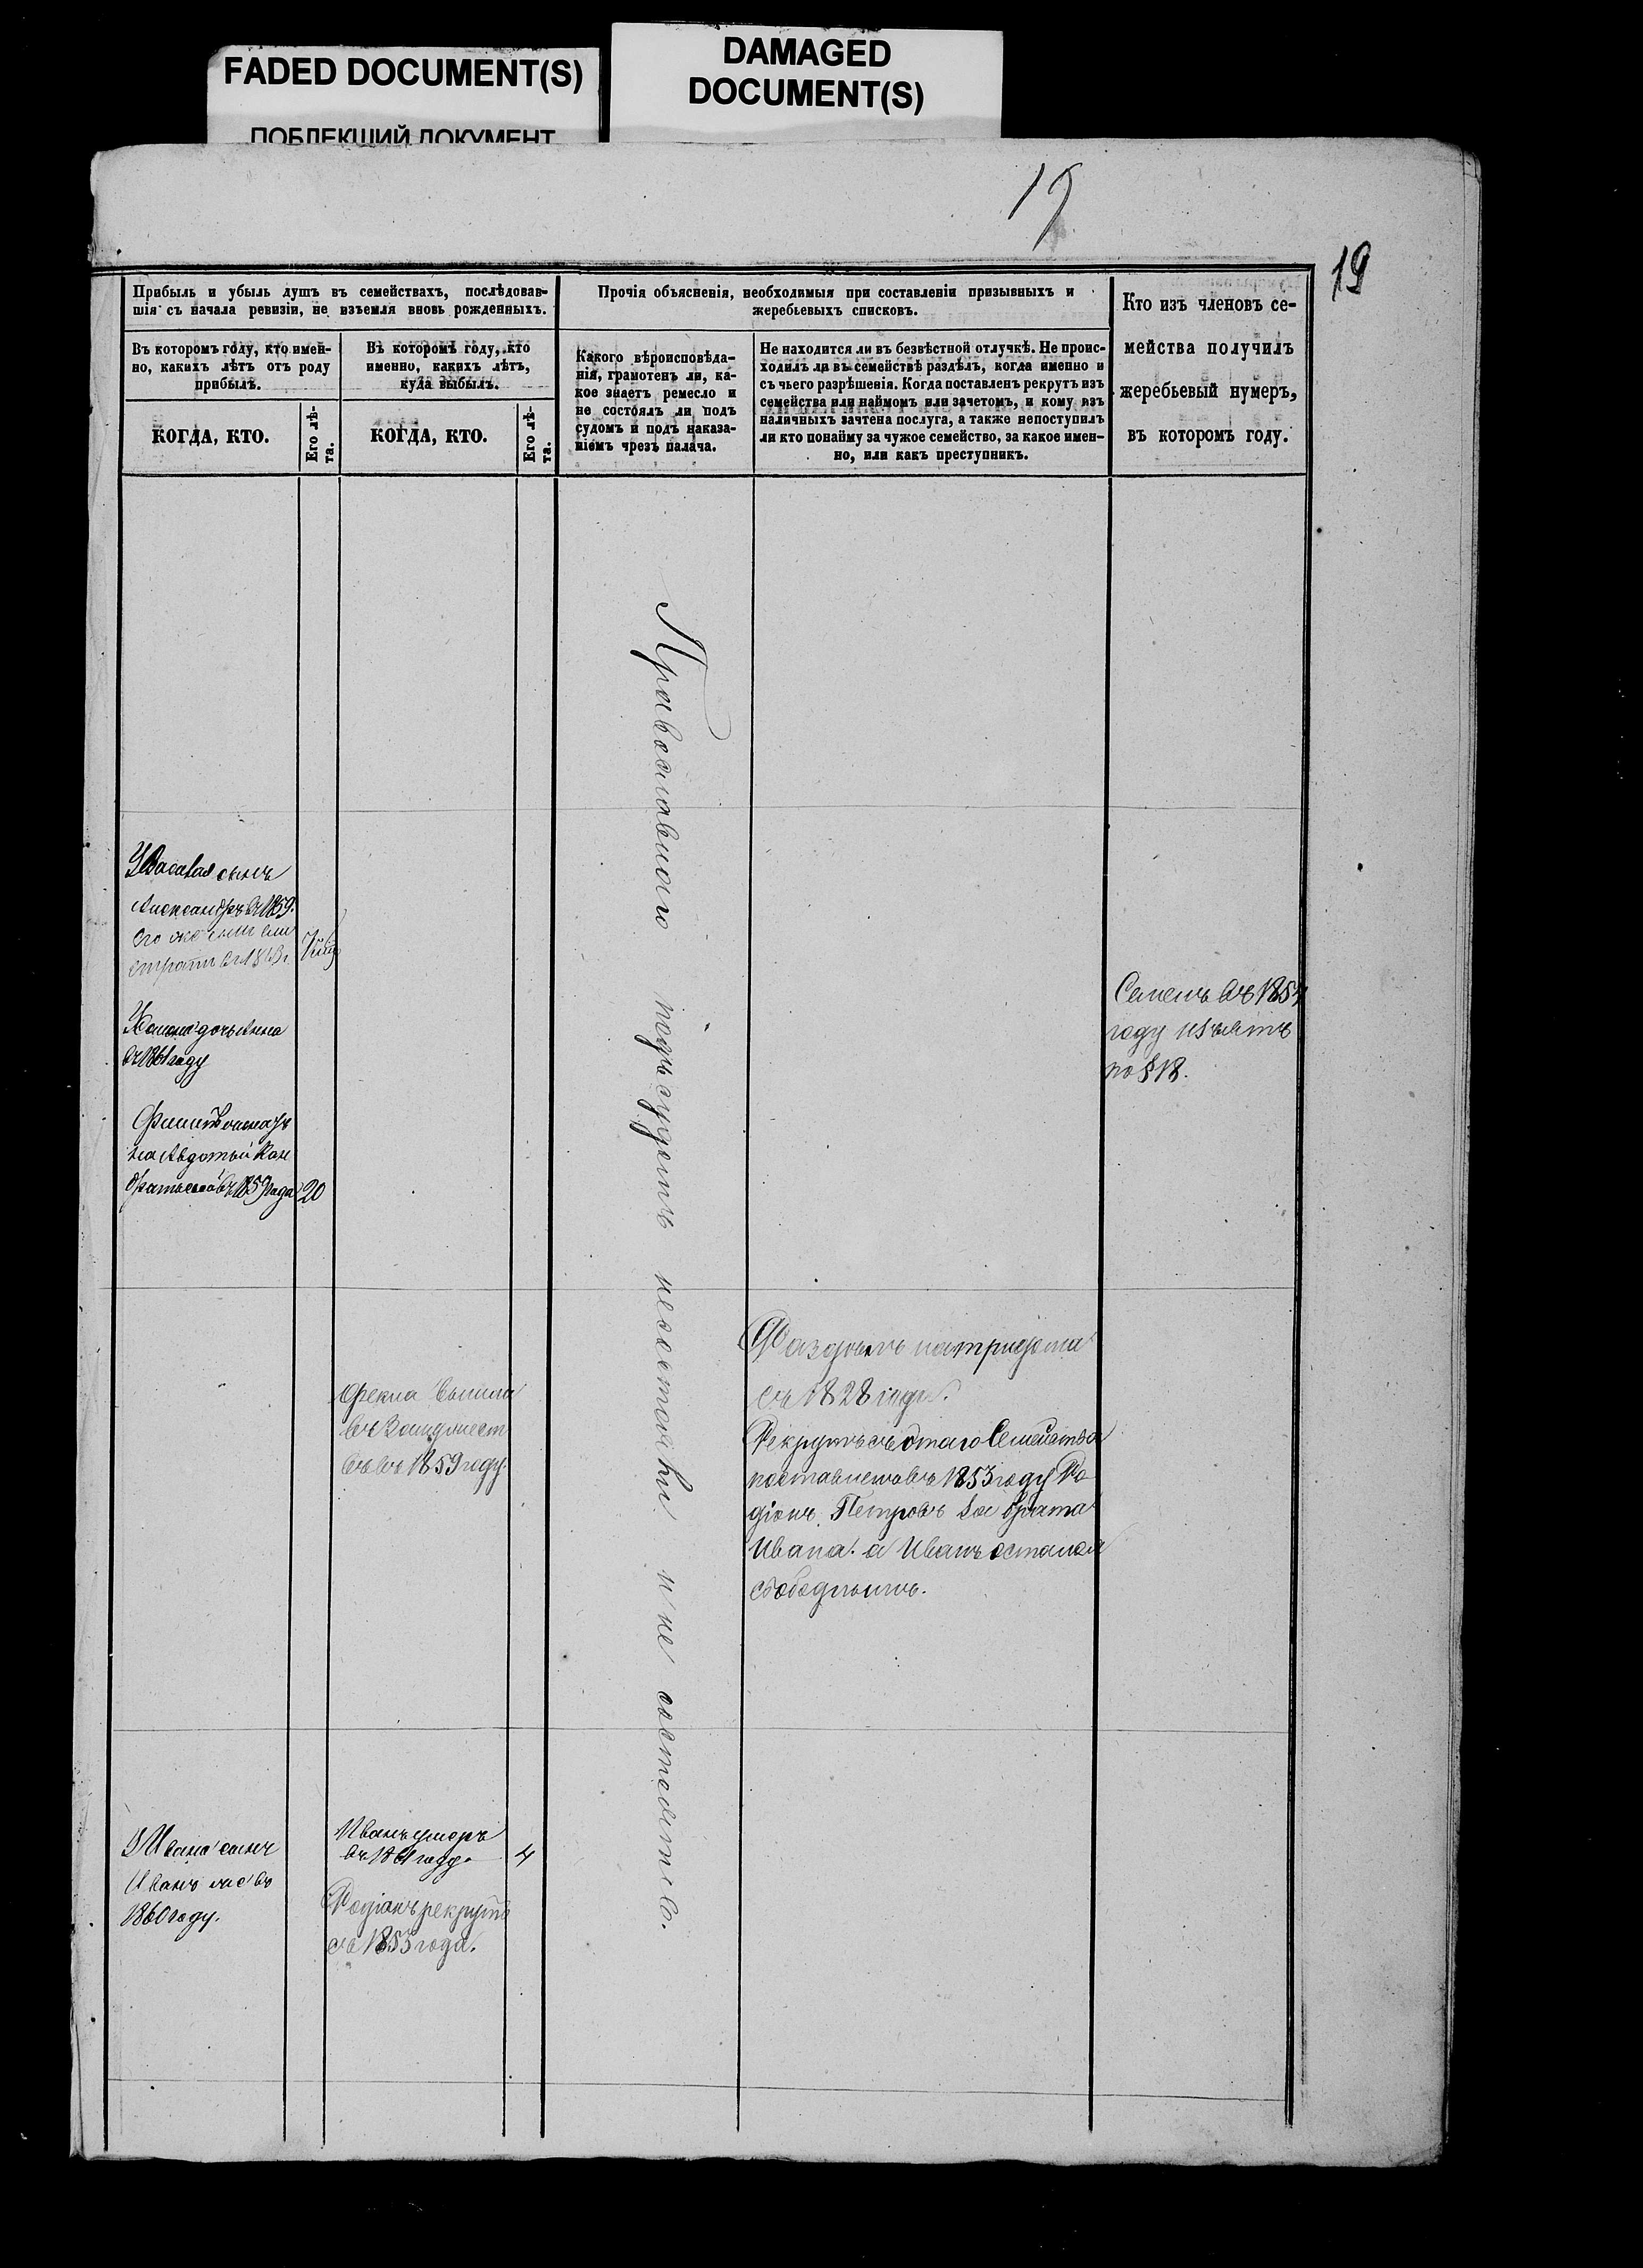 FADED DOCUMENT(S)
ПОБЛЕКШИЙ ДОКУМЕНТ
DAMAGED
DOCUMENT(S)
19
19
Прибыль и убыль душъ въ семействахъ, послѣдовав-
шія съ начала ревизіи, не изъемля вновь рожденныхъ.
Въ которомъ году, кто имен-
но, какихъ лѣтъ отъ роду
прибылъ.
КОГДА, КТО.
Его лѣ-
та.
Въ которомъ году, кто
именно, какихъ лѣтъ,
куда выбылъ.
КОГДА, КТО.
Его лѣ-
та.
Прочія объясненія, необходимыя при составленіи призывныхъ и
жеребьевыхъ списковъ.
Какого вѣроисповѣда-
нія, грамотенъ ли, ка-
кое знаетъ ремесло и
не состоялъ ли подъ
судомъ и подъ наказа-
ніемъ чрезъ палача.
Не находится ли въ безвѣстной отлучкѣ. Не проис-
ходилъ ли въ семействѣ раздѣлъ, когда именно и
съ чьего разрѣшенія. Когда поставленъ рекрутъ изъ
семейства или наймомъ или зачетомъ, и кому изъ
наличныхъ зачтена послуга, а также непоступилъ
ли кто понайму за чужое семейство, за какое имен-
но, или какъ преступникъ.
Кто изъ членовъ се-
мейства получилъ
жеребьевый нумеръ,
въ которомъ году.
сынъ
Александръ въ 1859.
его же сынъ
дочь Анна
въ 1861 году
на Авдотьи Кон
дратьевой въ 1859 года 20
Семенъ въ
году изъятъ
по § 18.
Православнаго подъ судомъ несостояли и не состоятъ.
Фекла вышла
въ Замужест
въ 1859 году.
Раздѣлъ
съ 1828 года.
Рекрутъ съ Этаго Семейства
поставленъ въ 1853 году Ро
діонъ Петровъ За брата
Ивана. а Иванъ остался
свободнымъ.
У Ивана сынъ
Иванъ
1860 году.
Иванъ умеръ
въ 1861 году. 4
Родіонъ рекрутъ
съ 1853 года.